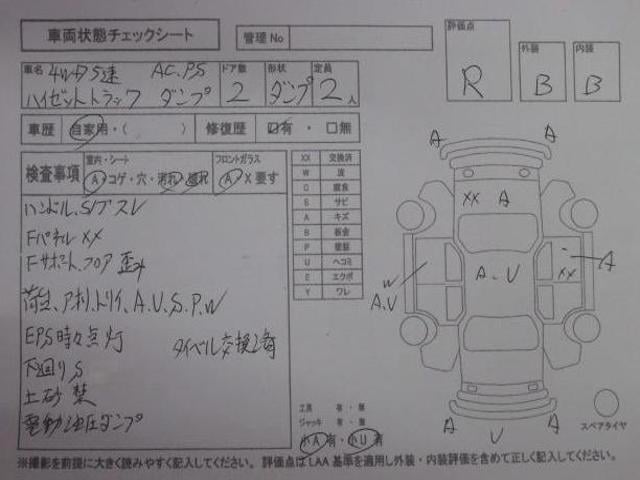 車両状態チェックシート
管理No
評価点 R
外装 B
内装 B
車名 4WD 5速 AC.PS
ハイゼットトラック ダンプ
ドア数 2
形状 ダンプ
定員 2人
車歴 自家用・( ) 修復歴 有・無
検査事項
室内・シート
A コゲ・穴・汚れ・
フロントガラス
A X要す
XX 交換済
W 波
C 腐食
S サビ
A キズ
B 板金
P 塗装
U ヘコミ
E エクボ
Y ワレ
ハンドル、S/ブスレ
Fパネル XX
Fサポート、フロア 歪み
荷台、アオリ、トリイ、A.U.S.P.W
EPS時々点灯
タイベル交換
下回りS
土砂禁
電動油圧ダンプ
A A
XX A
A.U
W
A.U
XX
A
A U A
工具 有・無
ジャッキ 有・無
小A有・小U有
スペアタイヤ
※撮影を前提に大きく読みやすく記入してください。 評価点はLAA基準を適用し外装・内装評価を含めて正しく記入してください。